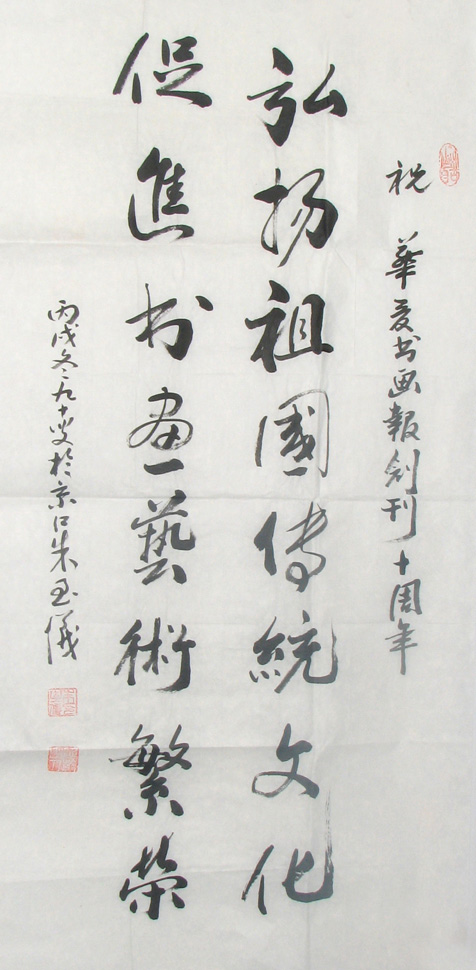 祝 華夏书画報創刊十周年
弘扬祖國传統文化
促進书画藝術繁荣
丙戌冬九十叟於京口朱玉儀